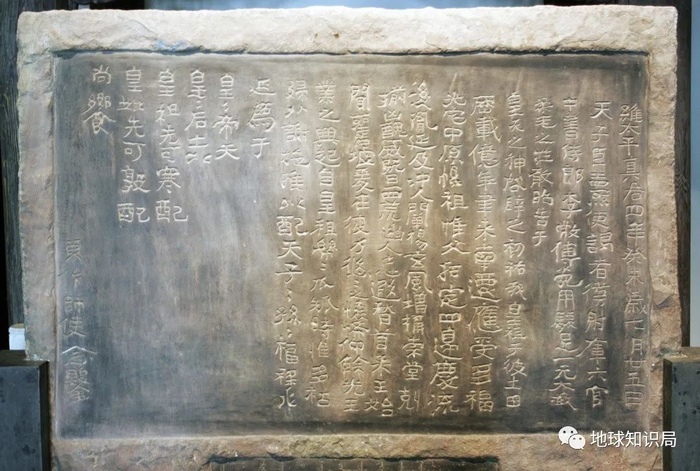 維太平真君四年癸未歲七月廿五日
天子臣燾使謁者僕射庫六官
中書侍郎李敞傅㝹用駿足一元大武
柔毛之牲敢昭告于
皇天之神啟辟之初祐我皇祖于彼土田
歷載億年聿來南遷應受多福
光宅中原惟祖惟父拓定四邊慶流
後胤延及沖人闡揚玄風增構崇堂剋
揃凶醜威暨四荒幽人忘遐稽首來王始
聞舊墟爰在彼方悠悠之懷希仰餘光王
業之興起自皇祖綿綿瓜瓞時惟多祜
歸以謝施推以配天子子孫孫福祿永
延薦于
皇皇帝天
皇皇后土
皇祖先可寒配
皇妣先可敦配
尚饗
東作帥使念鑿
地球知识局